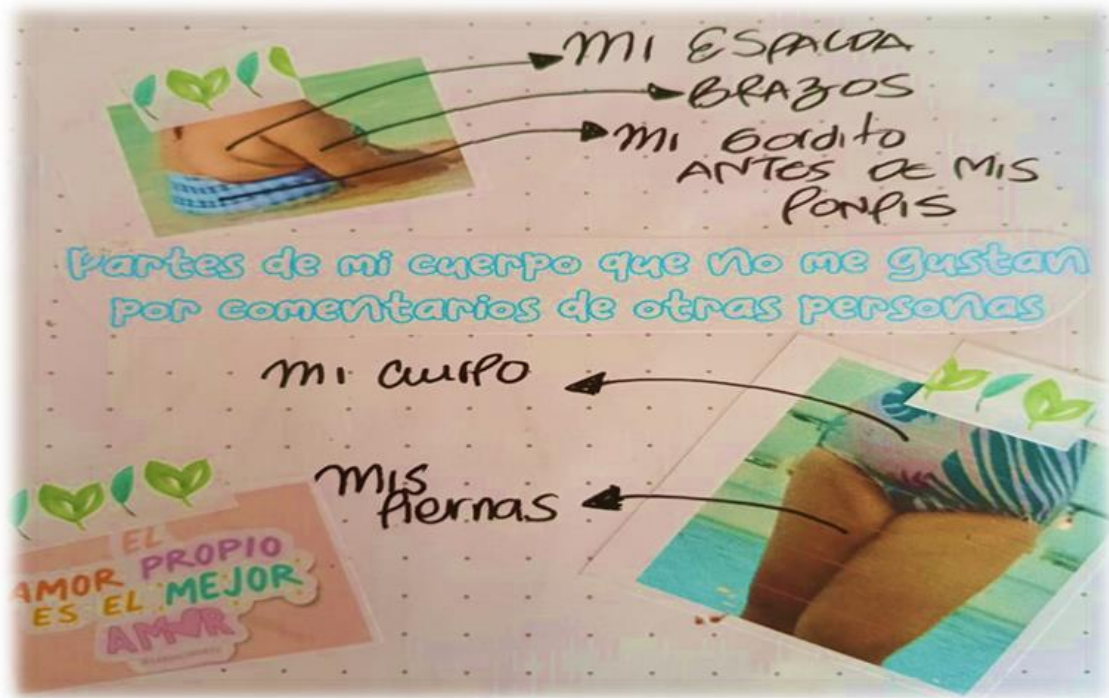 MI ESPALDA
BRAZOS
MI GORDITO
ANTES DE MIS
PONPIS
Partes de mi cuerpo que no me gustan
por comentarios de otras personas
MI CUERPO
MIS
Piernas
EL
AMOR PROPIO
ES EL MEJOR
AMOR